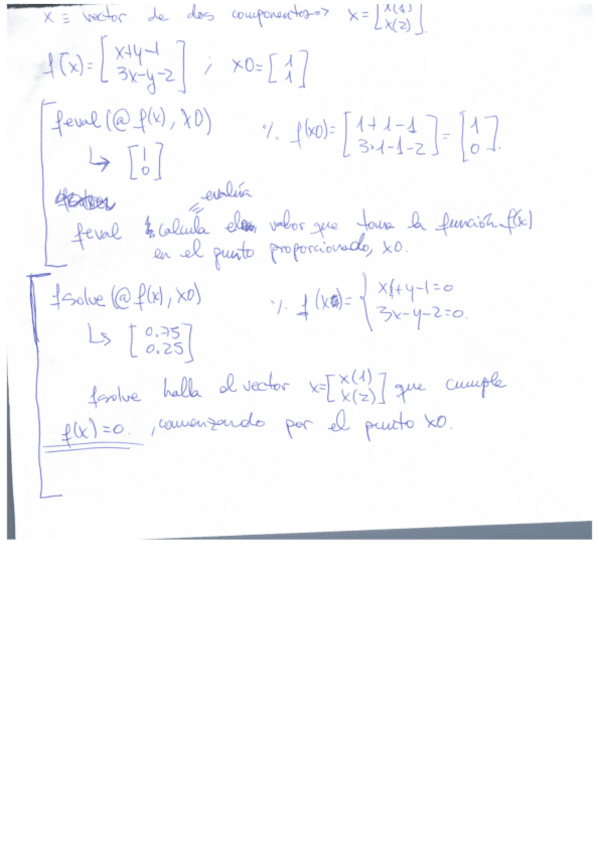 x ≡ vector de dos componentes => x = [x(1) x(2)].
f(x) = [x+y-1 3x-y-2] ; x0 = [1 1]
feval(@f(x), x0) % f(x0) = [1+1-1 3·1-1-2] = [1 0].
↳ [1 0]
evalúa
feval calcula el valor que toma la función f(x)
en el punto proporcionado, x0.
fsolve(@f(x), x0) % f(x) = { x+y-1=0 3x-y-2=0.
↳ [0.75 0.25]
fsolve halla el vector x=[x(1) x(2)] que cumple
f(x)=0. , comenzando por el punto x0.